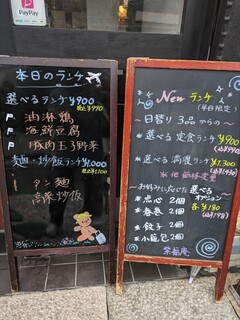 PayPay
本日のランチ
選べるランチ¥900
税込¥990
油淋鶏
海鮮豆腐
豚肉玉子野菜
麺・炒飯ランチ¥1,000
税込¥1,100
タン麺
高菜炒飯
New ランチ
(平日限定)
〜日替り 3品からの〜
選べる 定食ランチ ¥900
(込¥990)
選べる 満腹ランチ ¥1,300
(込¥1430)
〜お好みに応じた 選べる
オプション
点心 2個
春巻 2個
餃子 2個
小籠包 2個
各¥180
(込¥198)